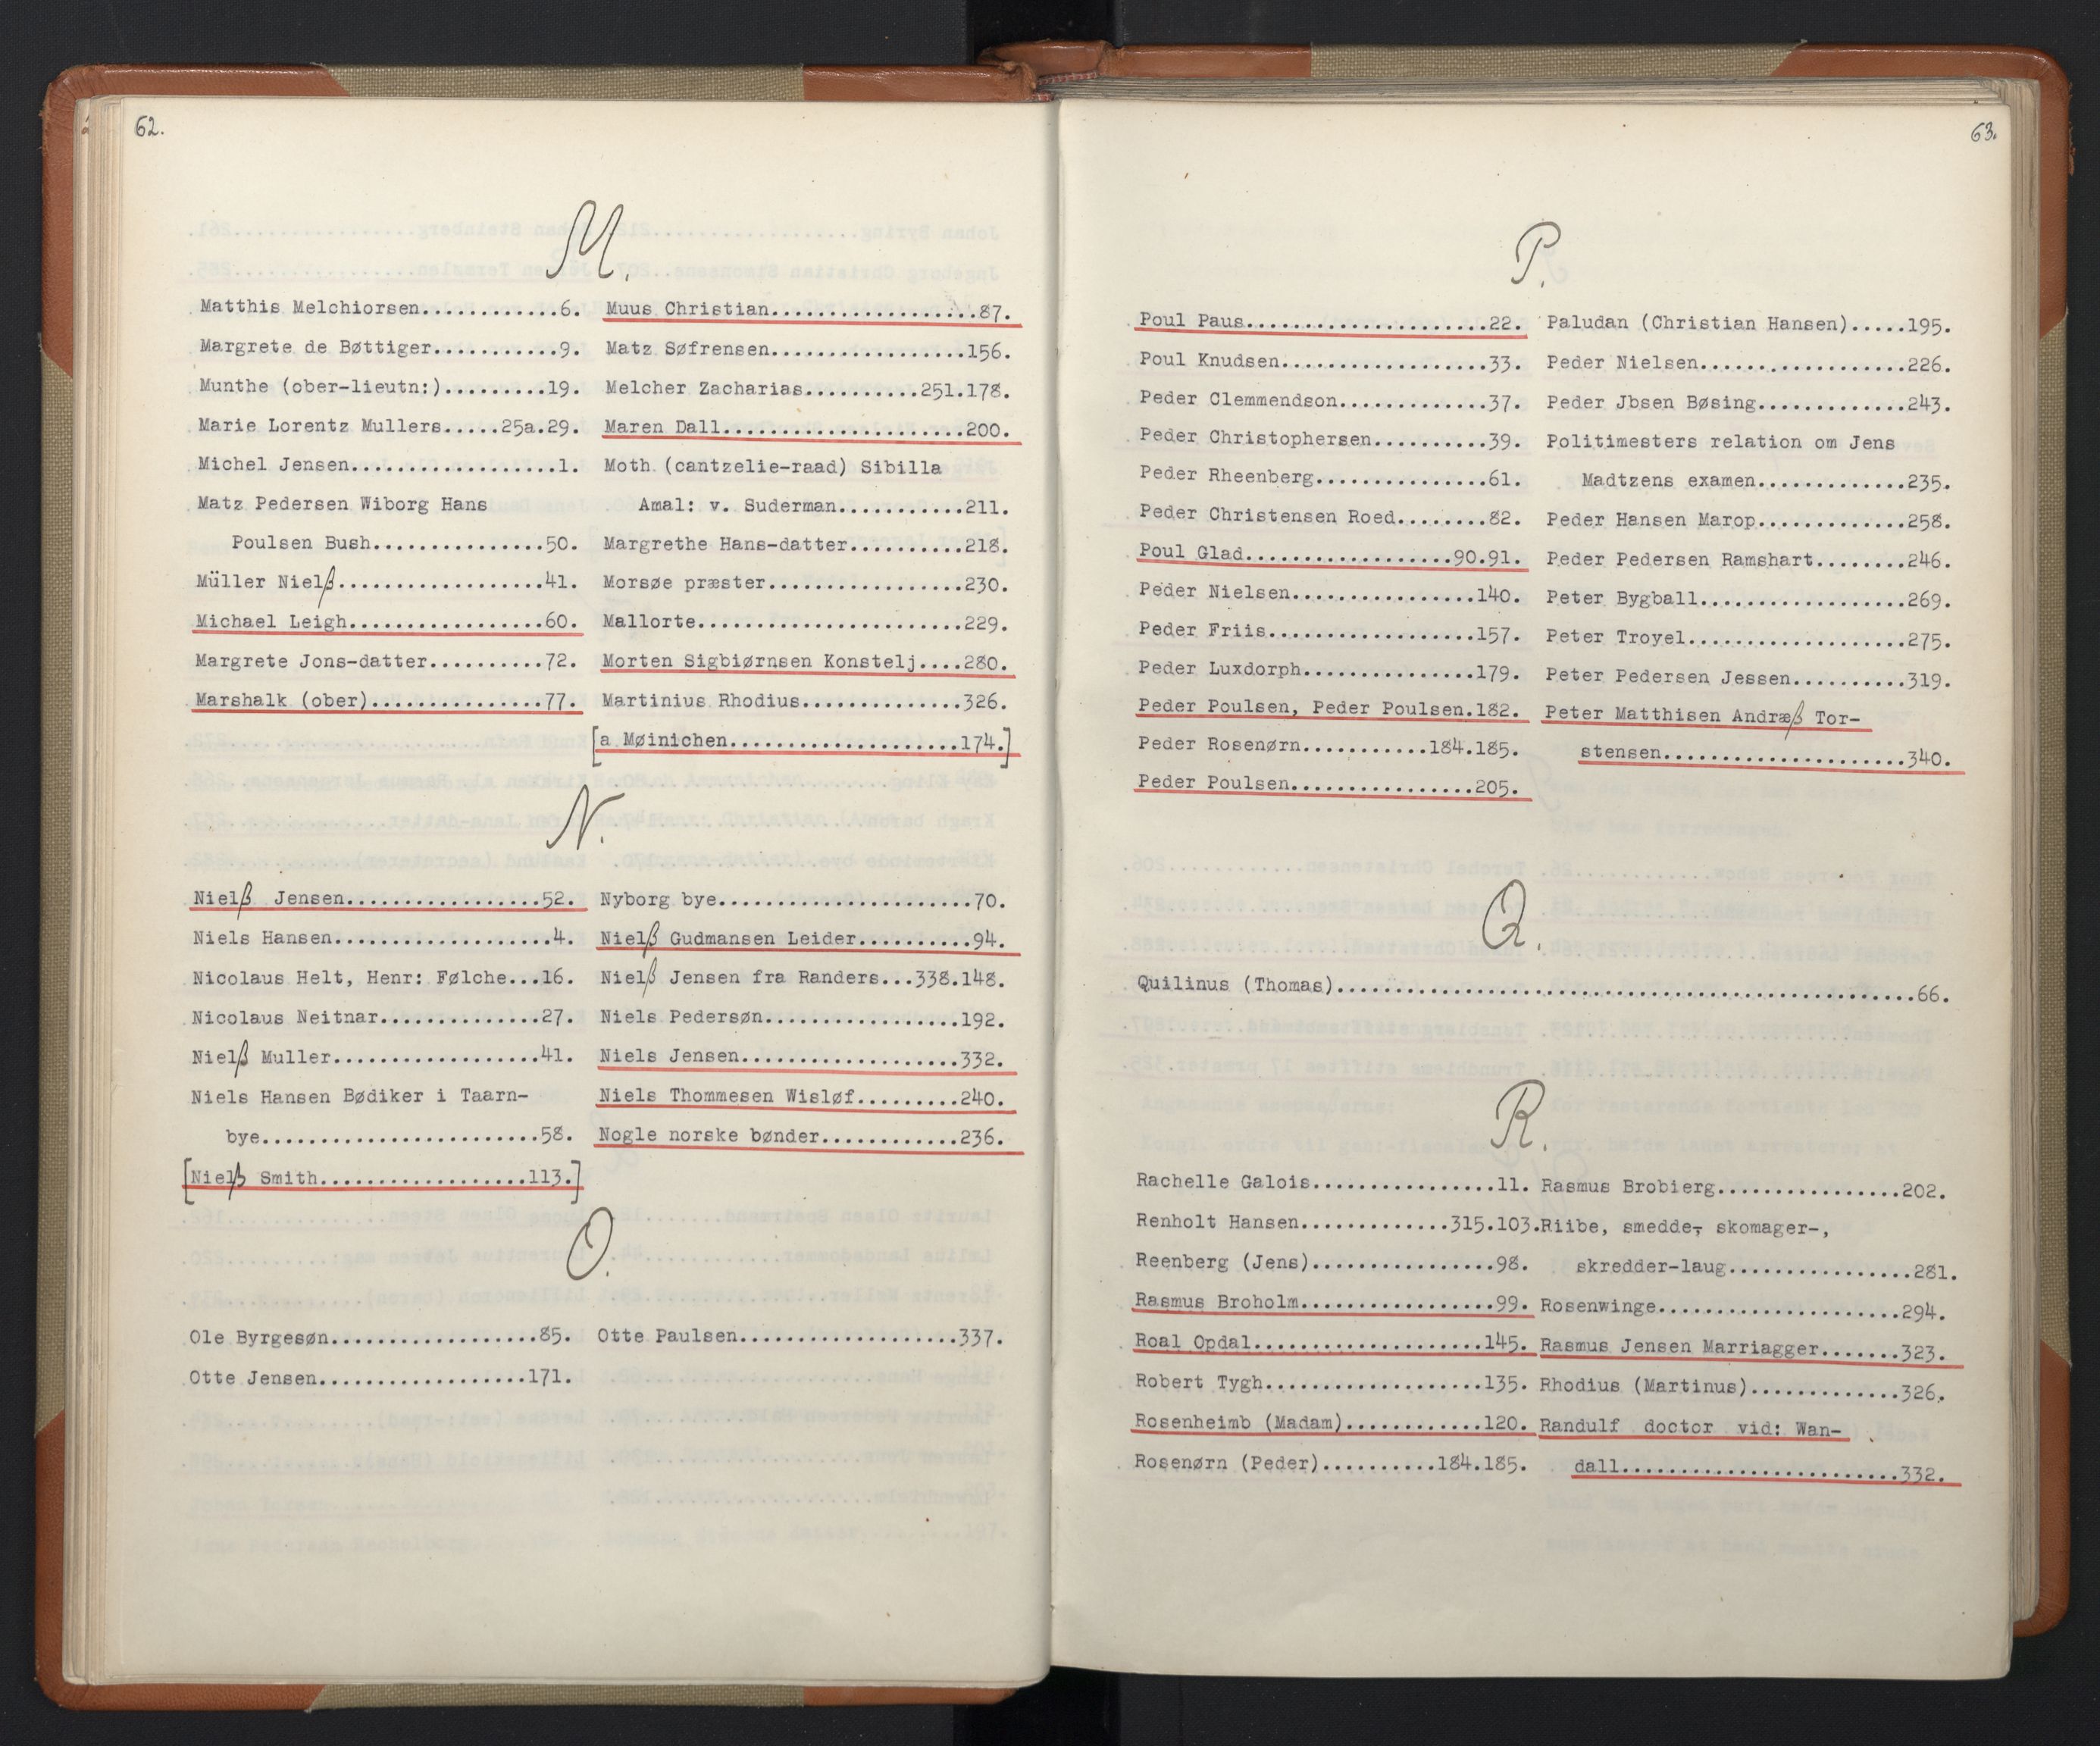 62.
M.
Matthis Melchiorsen............6.
Margrete de Bøttiger...........9.
Munthe (ober-lieutn:).........19.
Marie Lorentz Mullers.....25a.29.
Michel Jensen..................1.
Matz Pedersen Wiborg Hans
Poulsen Bush...............50.
Müller Nielß..................41.
Michael Leigh.................60.
Margrete Jons-datter..........72.
Marshalk (ober)...............77.
Muus Christian..................87.
Matz Søfrensen.................156.
Melcher Zacharias..........251.178.
Maren Dall.....................200.
Moth (cantzelie-raad) Sibilla
Amal: v. Suderman...........211.
Margrethe Hans-datter..........218.
Morsøe præster.................230.
Mallorte.......................229.
Morten Sigbiørnsen Konstelj....280.
Martinius Rhodius..............326.
[a Møinichen....................174.]
N.
Nielß Jensen.................52.
Niels Hansen...................4.
Nicolaus Helt, Henr: Følche...16.
Nicolaus Neitnar..............27.
Nielß Muller..................41.
Niels Hansen Bødiker i Taarn-
bye........................58.
[Nielß Smith..................113.]
Nyborg bye......................70.
Nielß Gudmansen Leider..........94.
Nielß Jensen fra Randers...338.148.
Niels Pedersøn.................192.
Niels Jensen...................332.
Niels Thommesen Wisløf.........240.
Nogle norske bønder............236.
O.
Ole Byrgesøn..................85.
Otte Jensen..................171.
Otte Paulsen...................337.
63.
P.
Poul Paus.....................22.
Poul Knudsen..................33.
Peder Clemmendson.............37.
Peder Christophersen..........39.
Peder Rheenberg...............61.
Peder Christensen Roed........82.
Poul Glad..................90.91.
Peder Nielsen................140.
Peder Friis..................157.
Peder Luxdorph...............179.
Peder Poulsen, Peder Poulsen.182.
Peder Rosenørn...........184.185.
Peder Poulsen................205.
Paludan (Christian Hansen).....195.
Peder Nielsen..................226.
Peder Jbsen Bøsing.............243.
Politimesters relation om Jens
Madtzens examen.............235.
Peder Hansen Marop.............258.
Peder Pedersen Ramshart........246.
Peter Bygball..................269.
Peter Troyel...................275.
Peter Pedersen Jessen..........319.
Peter Matthisen Andræß Tor-
stensen.....................340.
Q.
Quilinus (Thomas)..................................................66.
R.
Rachelle Galois................11.
Renholt Hansen.............315.103.
Reenberg (Jens)................98.
Rasmus Broholm.................99.
Roal Opdal....................145.
Robert Tygh...................135.
Rosenheimb (Madam)............120.
Rosenørn (Peder)..........184.185.
Rasmus Brobierg................202.
Riibe, smedde-, skomager-,
skredder-laug................281.
Rosenwinge.....................294.
Rasmus Jensen Marriagger.......323.
Rhodius (Martinus).............326.
Randulf doctor vid: Wan-
dall........................332.